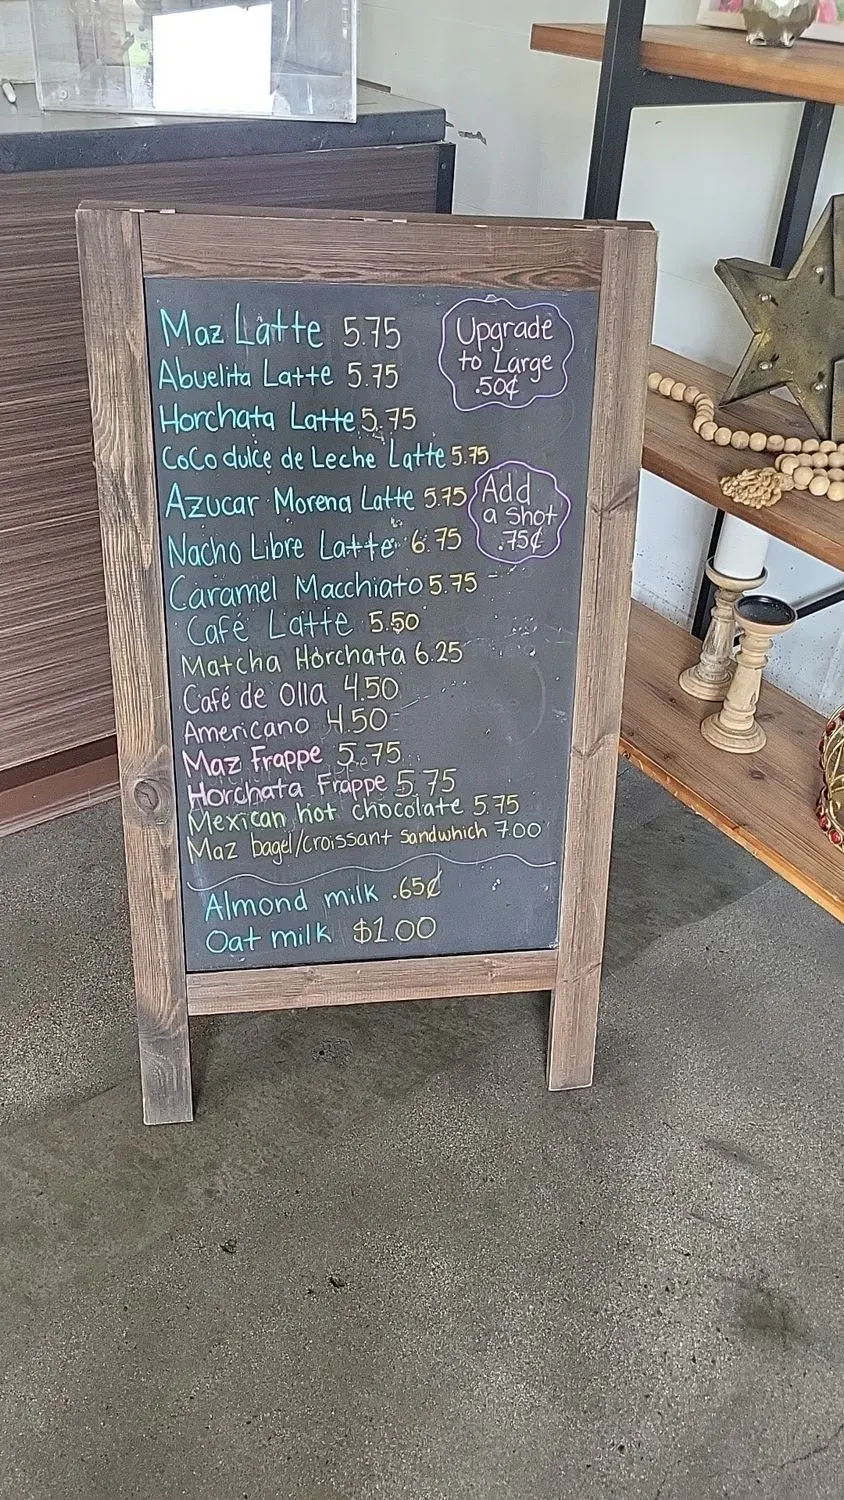 Maz Latte 5.75
Upgrade
to Large
.50¢
Abuelita Latte 5.75
Horchata Latte 5.75
CoCo dulce de Leche Latte 5.75
Azucar Morena Latte 5.75
Add
a shot
.75¢
Nacho Libre Latte 6.75
Caramel Macchiato 5.75
Café Latte 5.50
Matcha Horchata 6.25
Café de Olla 4.50
Americano 4.50
Maz Frappe 5.75
Horchata Frappe 5.75
Mexican hot chocolate 5.75
Maz bagel/croissant sandwhich 7.00
Almond milk .65¢
Oat milk $1.00